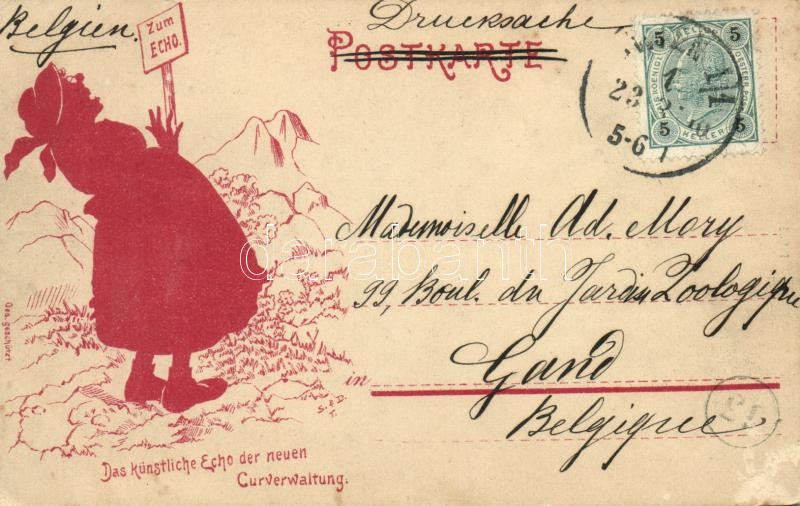 Belgien.
Drucksache
POSTKARTE
Zum
ECHO.
5 5
5 5
HELLER
23
5-6
Mademoiselle Ad. Mory
99, Boul. du Jardin Zoologique
in Gand
Belgique
Ges. geschützt
S. E. D.
Das künstliche Echo der neuen
Curverwaltung.
darabanth